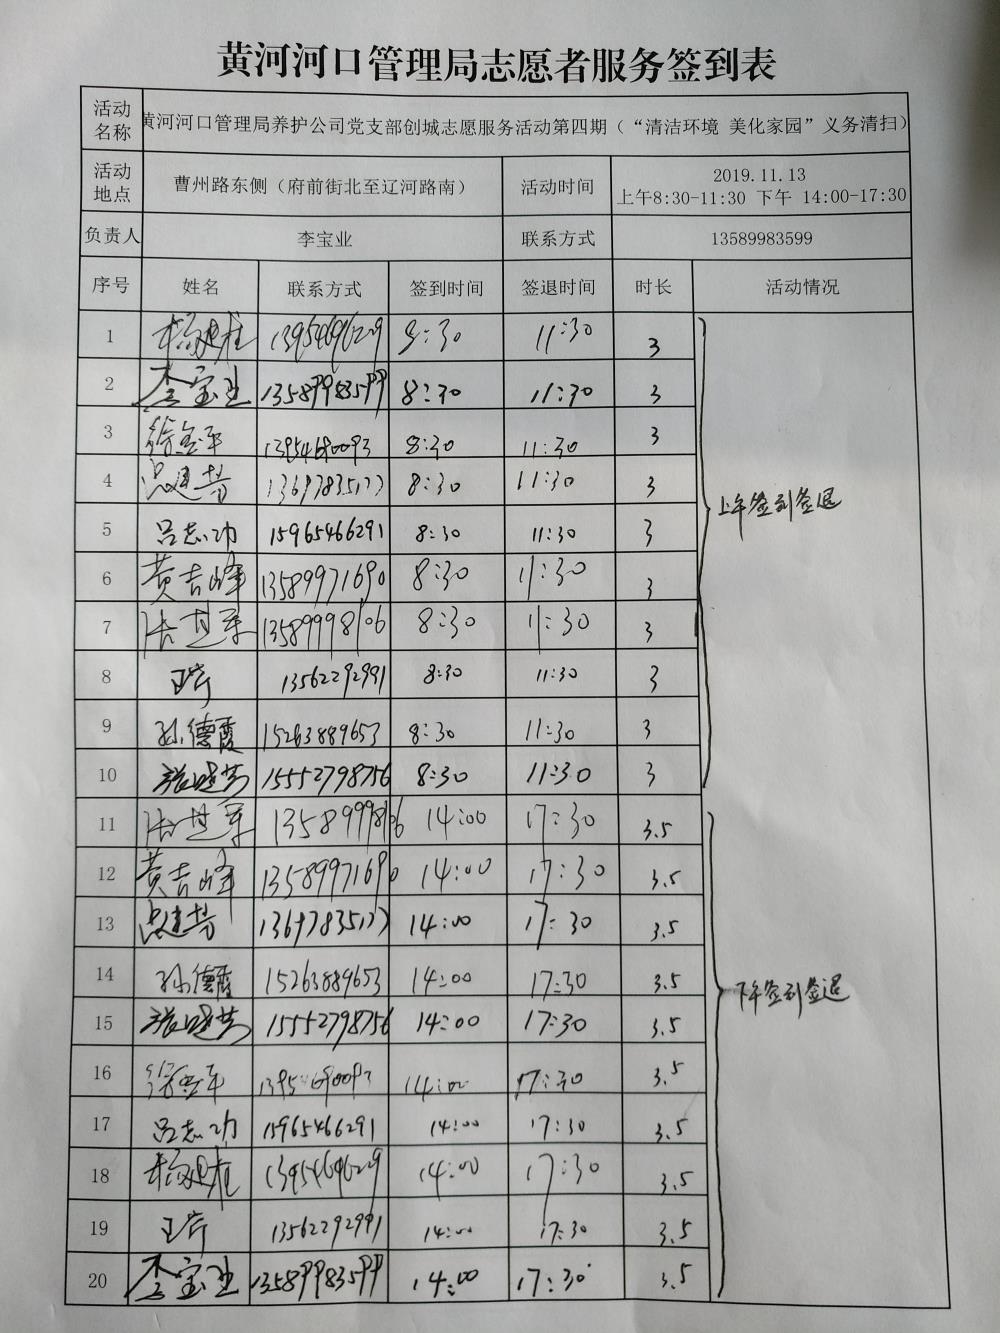 黄河河口管理局志愿者服务签到表
活动名称 黄河河口管理局养护公司党支部创城志愿服务活动第四期(“清洁环境 美化家园”义务清扫)
活动地点 曹州路东侧(府前街北至辽河路南) 活动时间 2019.11.13
上午8:30-11:30 下午 14:00-17:30
负责人 李宝业 联系方式 13589983599
序号 姓名 联系方式 签到时间 签退时间 时长 活动情况
1 13954696229 8:30 11:30 3
2 李宝业 13589983599 8:30 11:30 3
3 徐金平 13954690093 8:30 11:30 3
4 8:30 11:30 3
上午签到签退
5 吕志功 15965466291 8:30 11:30 3
6 黄吉峰 13589971690 8:30 11:30 3
7 13589998106 8:30 11:30 3
8 王芹 13562292991 8:30 11:30 3
9 孙德霞 15263889653 8:30 11:30 3
10 15552798756 8:30 11:30 3
11 13589998106 14:00 17:30 3.5
12 黄吉峰 13589971690 14:00 17:30 3.5
13 14:00 17:30 3.5
14 孙德霞 15263889653 14:00 17:30 3.5
下午签到签退
15 15552798756 14:00 17:30 3.5
16 徐金平 13954690093 14:00 17:30 3.5
17 吕志功 15965466291 14:00 17:30 3.5
18 13954696229 14:00 17:30 3.5
19 王芹 13562292991 14:00 17:30 3.5
20 李宝业 13589983599 14:00 17:30 3.5